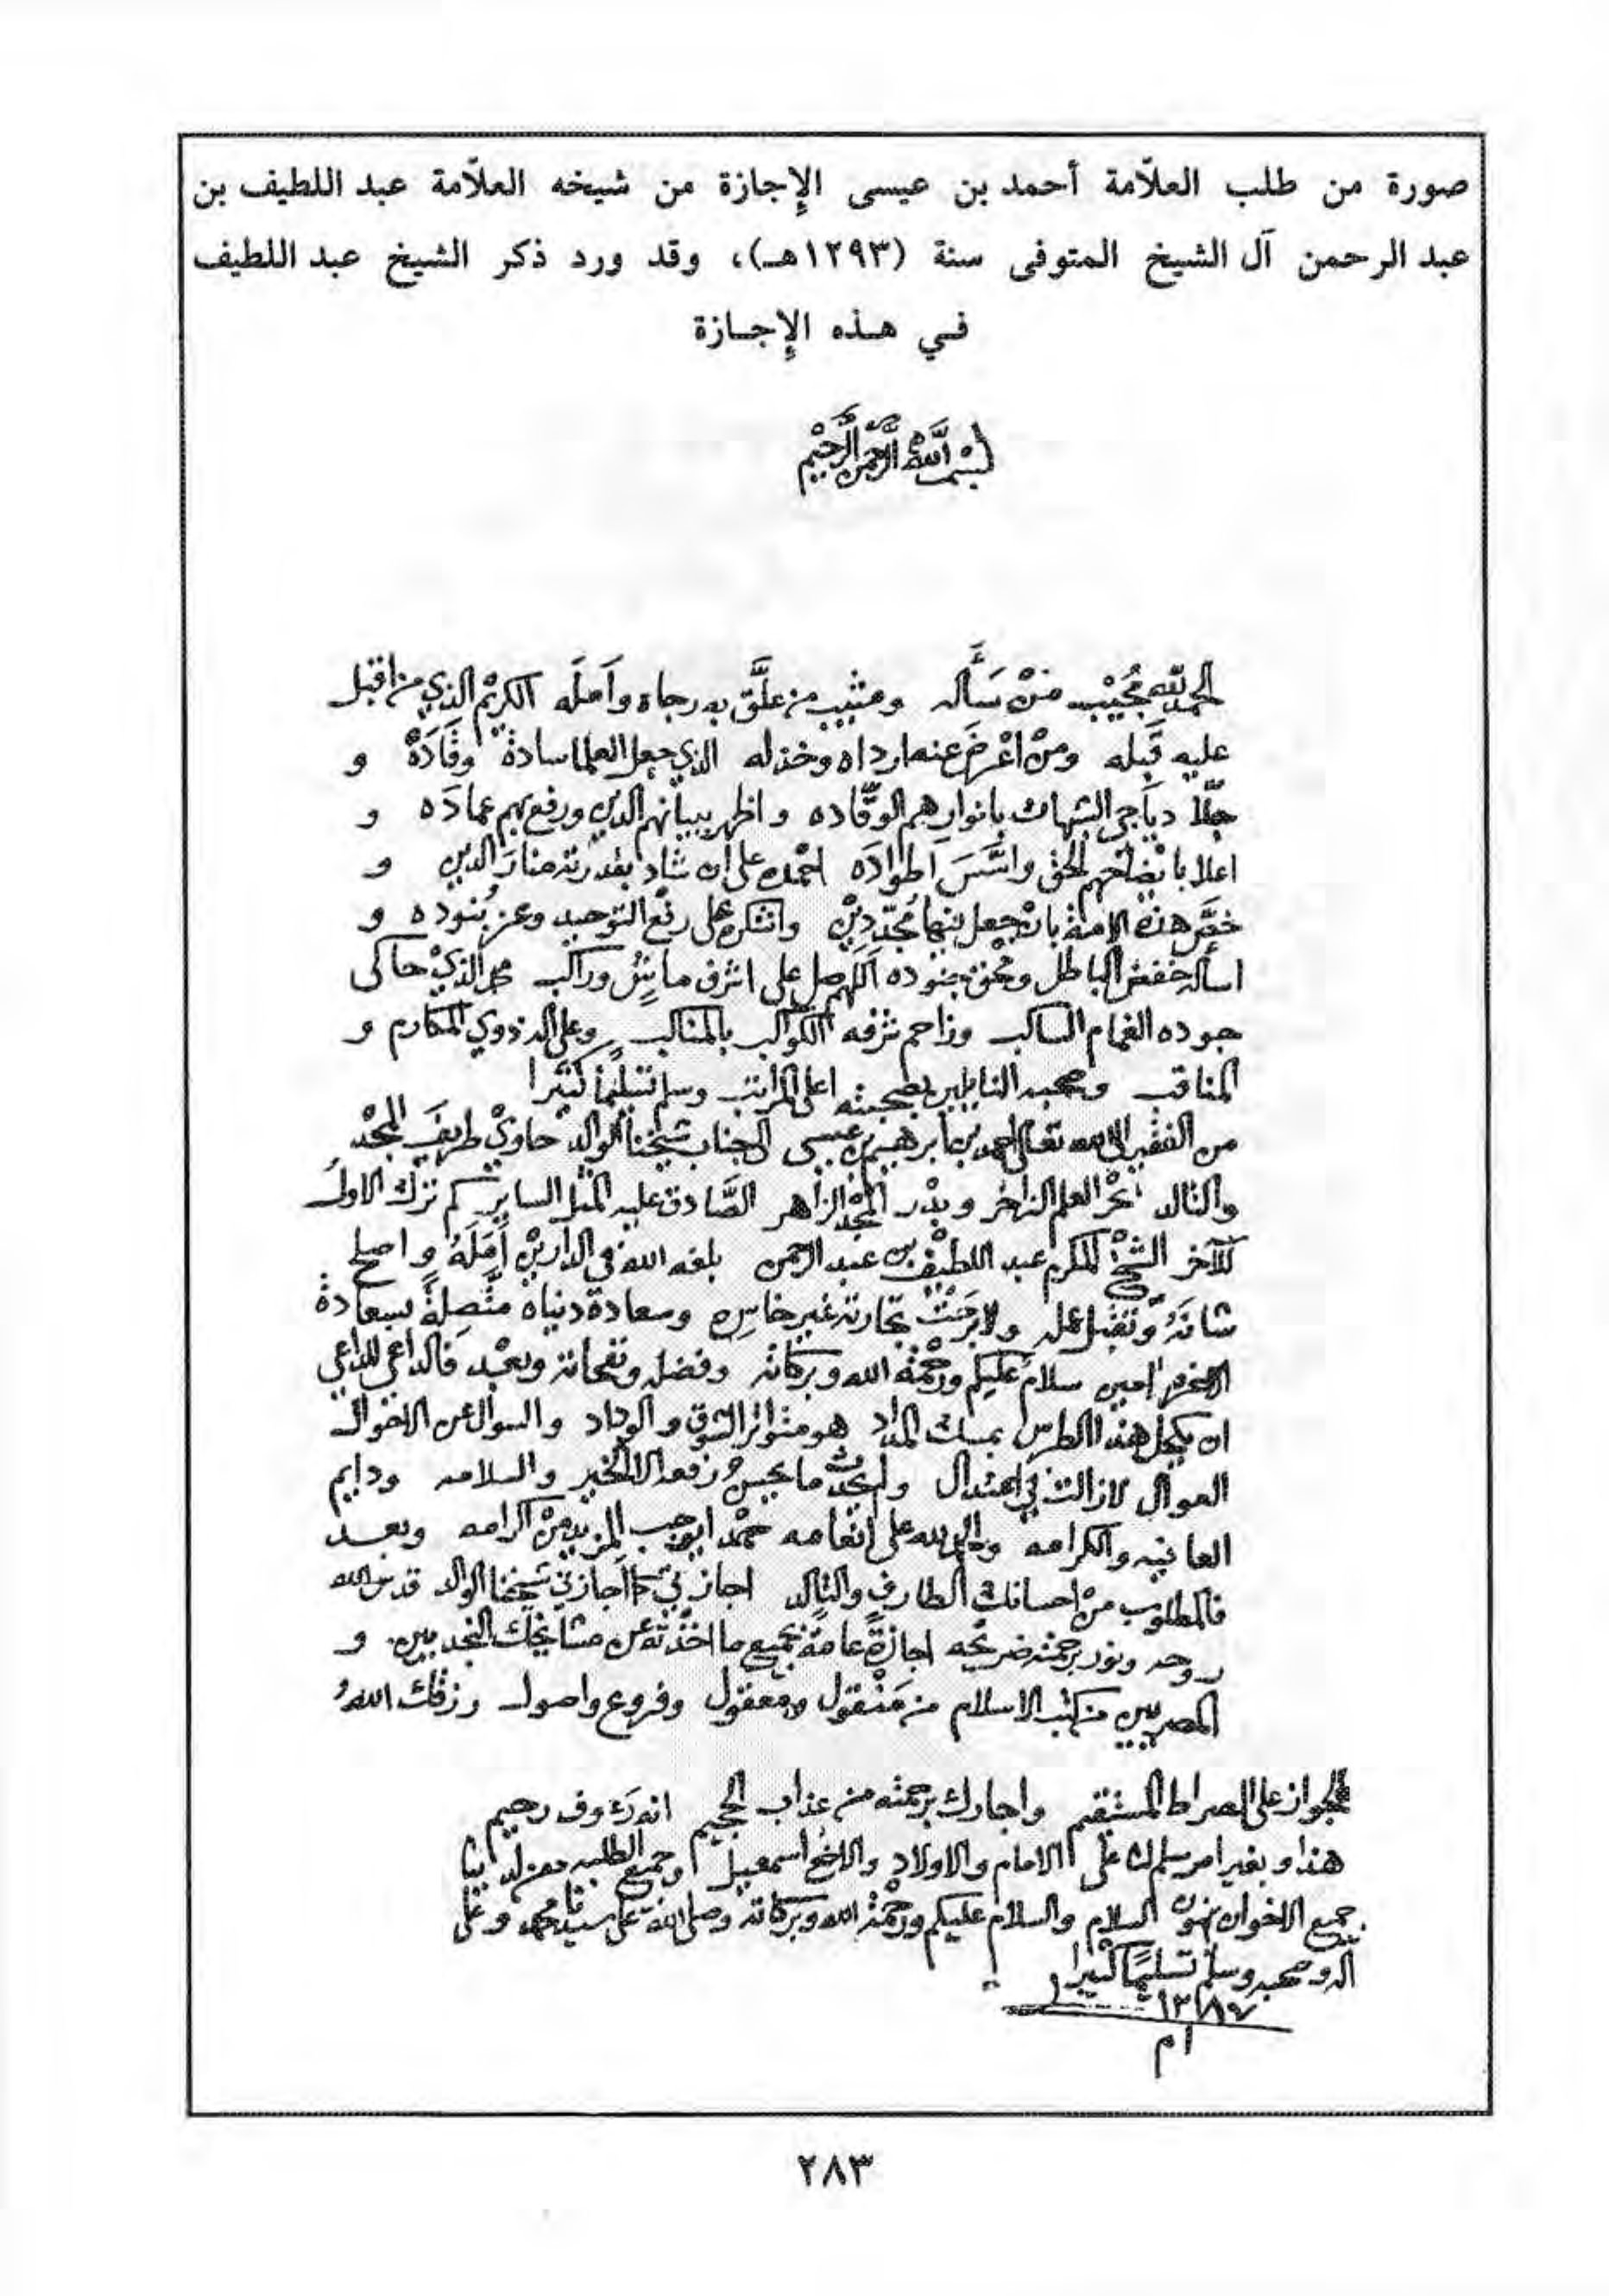 صورة من طلب العلّامة أحمد بن عيسى الإجازة من شيخه العلّامة عبد اللطيف بن
عبد الرحمن آل الشيخ المتوفى سنة (١٢٩٣هـ)، وقد ورد ذكر الشيخ عبد اللطيف
في هذه الإجازة
بسم الله الرحمن الرحيم
الحمد لله مُجيْب منْ سَأَله ومثيب من علَّق به رجاه وأَملَه الكريْم الذي من اقبل
عليه قَبله ومنْ اعْرضَ عنه ارداه وخذله الذي جعل العلما سادةً وقَادَةْ و
جلّا دياَجي الشبهات بانوارِهم الوقّاده واظهر ببيانهم الدين ورفع بهم عمادَه و
اعلا بايْضاحهم الحق واسَّسَ اَطوادَه احمده على ان شاد بقدرته منارَ الدين و
خصَّ هذه الامة بان جعل منها مُجدّدِيْن واشكره على رفْع التوحيد وعز بُنوده و
اسأله خفض الباطل ومحْق جنوده اَللهم صل على اشرف ماشٍ وراكب محمد الذيْ حاكى
جوده الغمام الساكب وزاحم شرفه الكواكب بالمناكب وعلى اله ذوي المكارم و
المناقب وصحبه النايلين بصحبته اعلى المراتب وسلم تسليماً كثيرا
من الفقير الى الله تعالى احمد بن ابرهيم بن عيسى الى جناب شيخنا الوالد حاويْ طريفَ المجْد
والتالد بحْر العلم الزاخر وبدْر المجْد الزاهر الصَّادق عليه المثل الساير كم ترك الاول
للآخر الشيْخ المكرم عبد اللطيْف بن عبد الرحمن بلغه الله في الداريْن أَمَلَهُ واصلح
شانَهُ وتقبل عمله ولا برَحَتْ تجارته غير خاسره وسعادة دنياه متَّصِلةً بسعادة
الاخره امين سلامٌ عليكم ورحْمة الله وبركاته وفضله ونفحاته وبعْد فالداعي للداعي
ان يكحل هذا الطرس بمسك المداد هو متواتر الشوق والوداد والسوال عن الاحوال
العوال لازالت في اعتدال ولم يحْدث ما يحسن رفعه الا الخير والسلامه ودايم
العافيه والكرامه والحمد لله على انعامه حمْدا يوجب المزيد منْ اكرامه وبعد
فالمطلوْب منْ احسانك الطارف والتالد اجازتيْ كما اَجازنيْ شيخنا الوالد قدس الله
روحه ونور برحمته ضريحه اجازةً عامة بجميع ما اخذْته عن مشايخك النجديين و
المصريين من كتب الاسلام من مَنْقول ومعقول وفروع واصول رزقك اللهُ
الجواز على الصراط المستقيم واجارك برحمته من عذاب الجحيم انه رءوف رحيم
هذا وبغير امر سلم لنا على الامام والاولاد والاخ اسمعيل وجميع الطلبه ومن لدينا
جميع الاخوان ينهون السلام والسلام عليكم ورحْمة الله وبركاته وصلى الله على سيدنا محمد وعلى
اله وصحبه وسلم تسليمًا كثيرا
١٢٨٧
ا م
٢٨٣